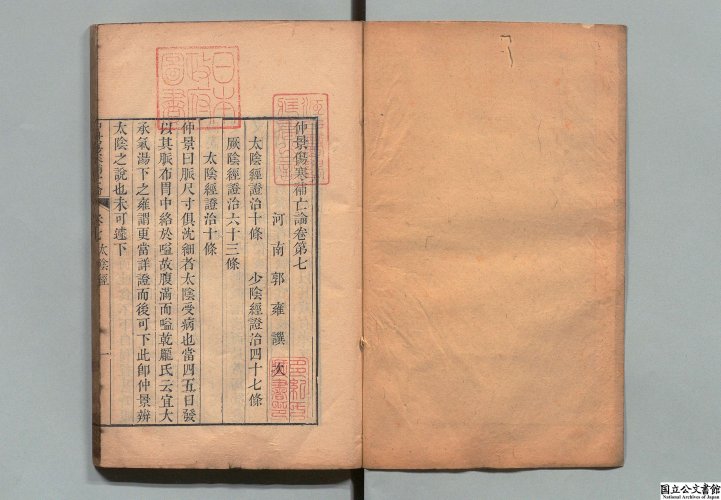 仲景傷寒補亡論卷第七
河南郭雍譔次
太陰經證治十條　少陰經證治四十七條
厥陰經證治六十三條
太陰經證治十條
仲景曰脈尺寸俱沈細者太陰受病也當四五日發
以其脈布胃中絡於嗌故腹滿而嗌乾龐氏云宜大
承氣湯下之雍謂更當詳證而後可下此卽仲景辨
太陰之說也未可遽下
卷七 太陰經
一
日本政府圖書
国立公文書館
National Archives of Japan